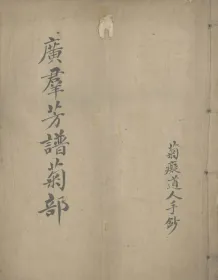 廣羣芳譜菊部
菊癡道人手鈔